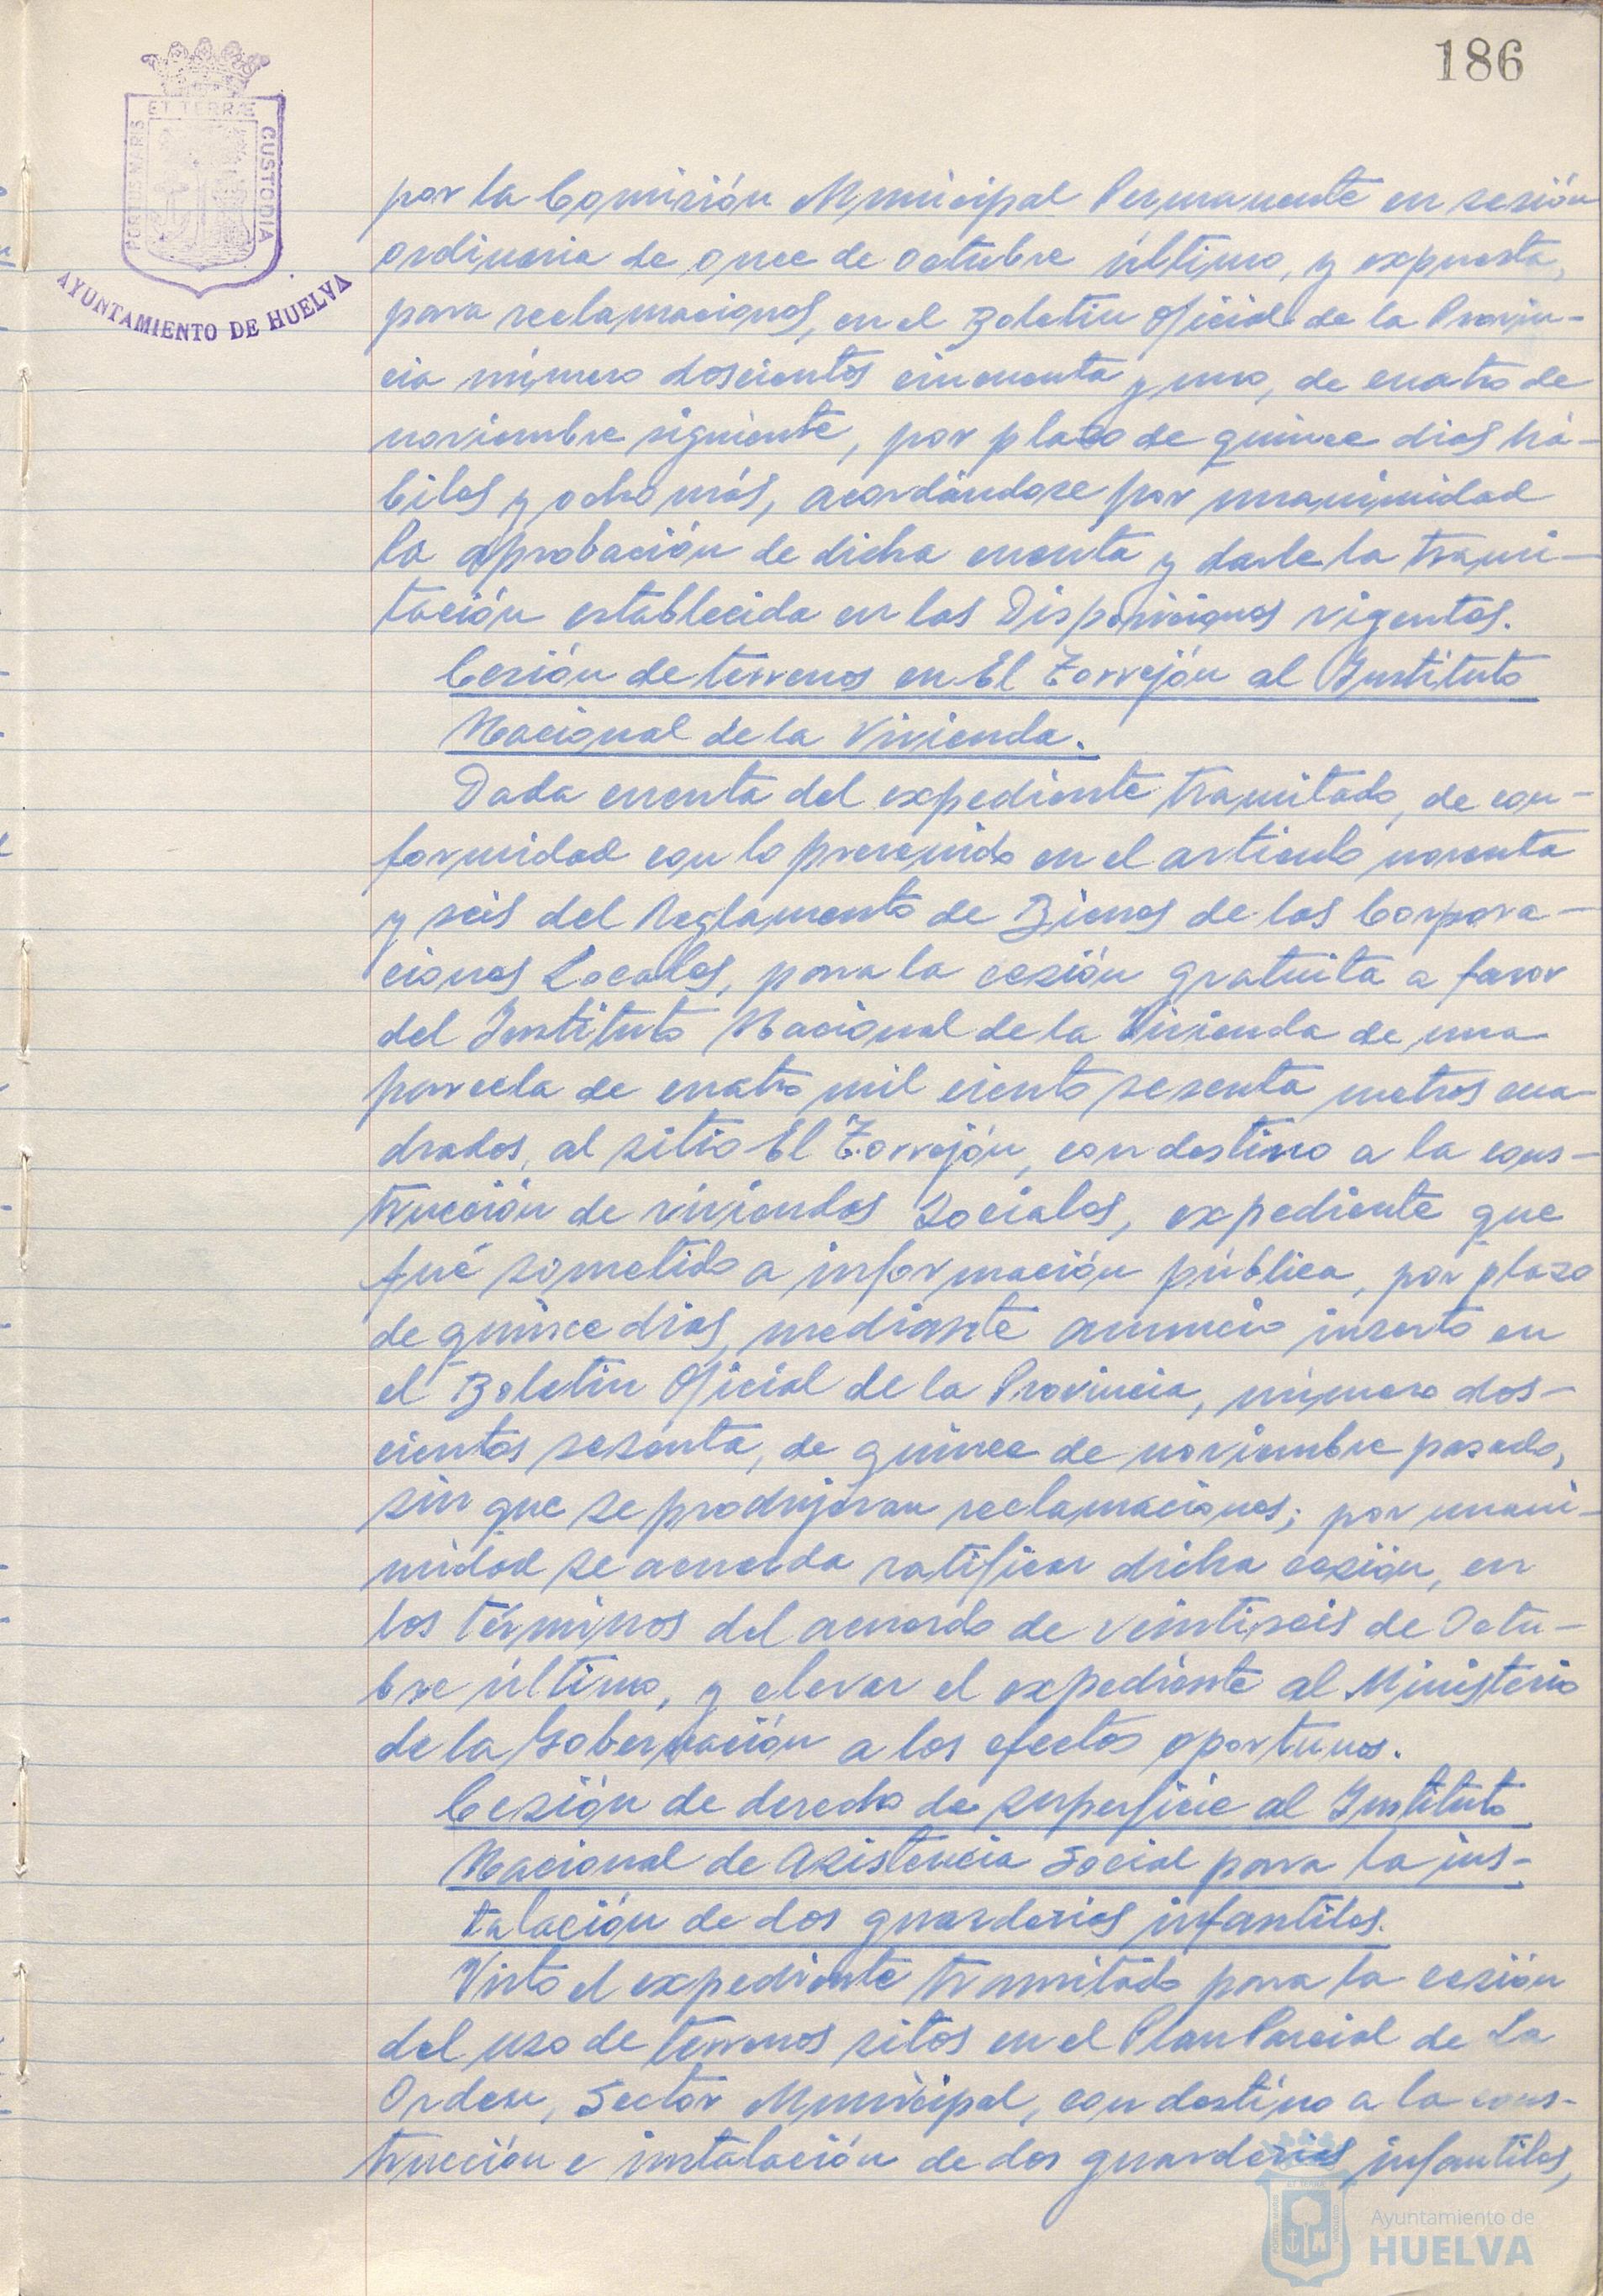 186
PORTUS MARIS ET TERRÆ CUSTODIA
AYUNTAMIENTO DE HUELVA
por la Comisión Municipal Permanente en sesión
ordinaria de once de octubre último, y expuesta,
para reclamaciones, en el Boletin Oficial de la Provin-
cia número doscientos cincuenta y uno, de cuatro de
noviembre siguiente, por plazo de quince dias há-
biles y ocho más, acordándose por unanimidad
la aprobación de dicha cuenta y darle la trami-
tación establecida en las Disposiciones vigentes.
Cesión de terrenos en El Torrejón al Instituto
Nacional de la Vivienda.
Dada cuenta del expediente tramitado, de con-
formidad con lo prevenido en el articulo noventa
y seis del Reglamento de Bienes de las Corpora-
ciones Locales, para la cesión gratuita a favor
del Instituto Nacional de la Vivienda de una
parcela de cuatro mil ciento sesenta metros cua-
drados, al sitio El Torrejón, con destino a la cons-
trucción de viviendas Sociales, expediente que
fué sometido a información pública, por plazo
de quince dias, mediante anuncio inserto en
el Boletin Oficial de la Provincia, número dos-
cientos sesenta, de quince de noviembre pasado,
sin que se produjeran reclamaciones; por unani-
midad se acuerda ratificar dicha cesión, en
los términos del acuerdo de veintiseis de Octu-
bre último, y elevar el expediente al Ministerio
de la Gobernación a los efectos oportunos.
Cesión de derecho de superficie al Instituto
Nacional de Asistencia Social para la ins-
talación de dos guarderias infantiles.
Visto el expediente tramitado para la cesión
del uso de terrenos sitos en el Plan Parcial de La
Orden, Sector Municipal, con destino a la cons-
trucción e instalación de dos guarderias infantiles,
Ayuntamiento de
HUELVA